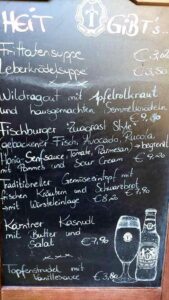 HEIT GIBT's...
T
Frittatensuppe €3,02
Leberknödelsuppe
Wildragout mit Apfelrotkraut
und hausgemachten Semmelknödeln
Fischburger "Zuagrast Style"
gebackener Fisch, Avocado, Rucola,
Honig-Senfsauce, Tomate, Parmesan
mit Pommes und Sour Cream
Traditioneller Gemüseeintopf mit
frischen Kräutern und Schwarzbrot
mit Wursteinlage €8,20
Kärntner Kasnudl
mit Butter und
Salat €7,90
Topfenstrudel mit
Vanillesauce €3,80